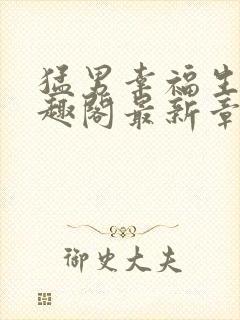 猛男幸福生
趣阁最新章
御史大夫